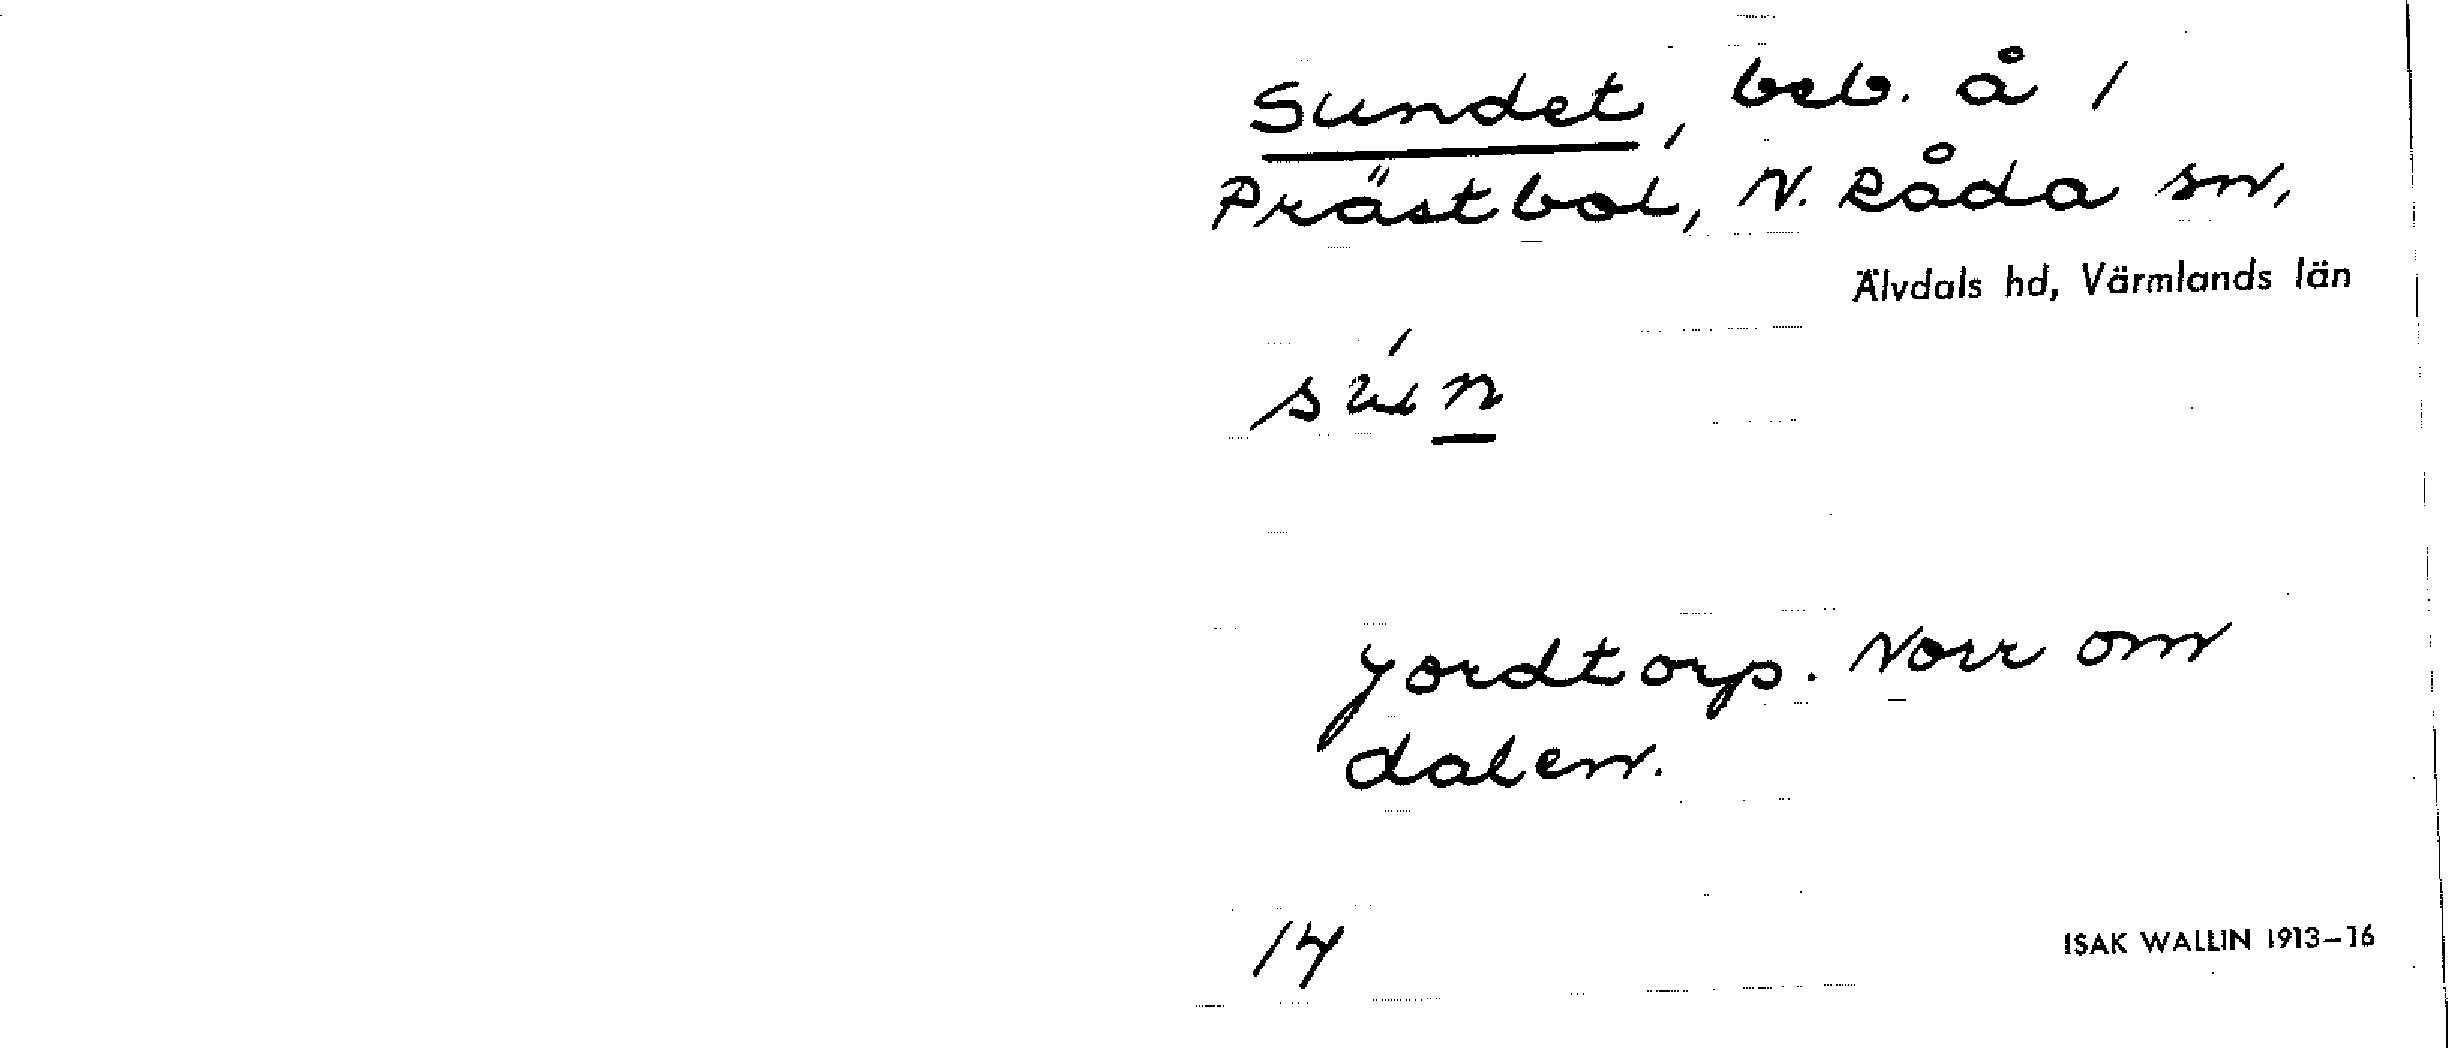 Sundet, beb. å 1
Prästbol, N. Råda sn,
Älvdals hd, Värmlands län
Jordtorp. Norr om
dalen.
14
ISAK WALLIN 1913–16